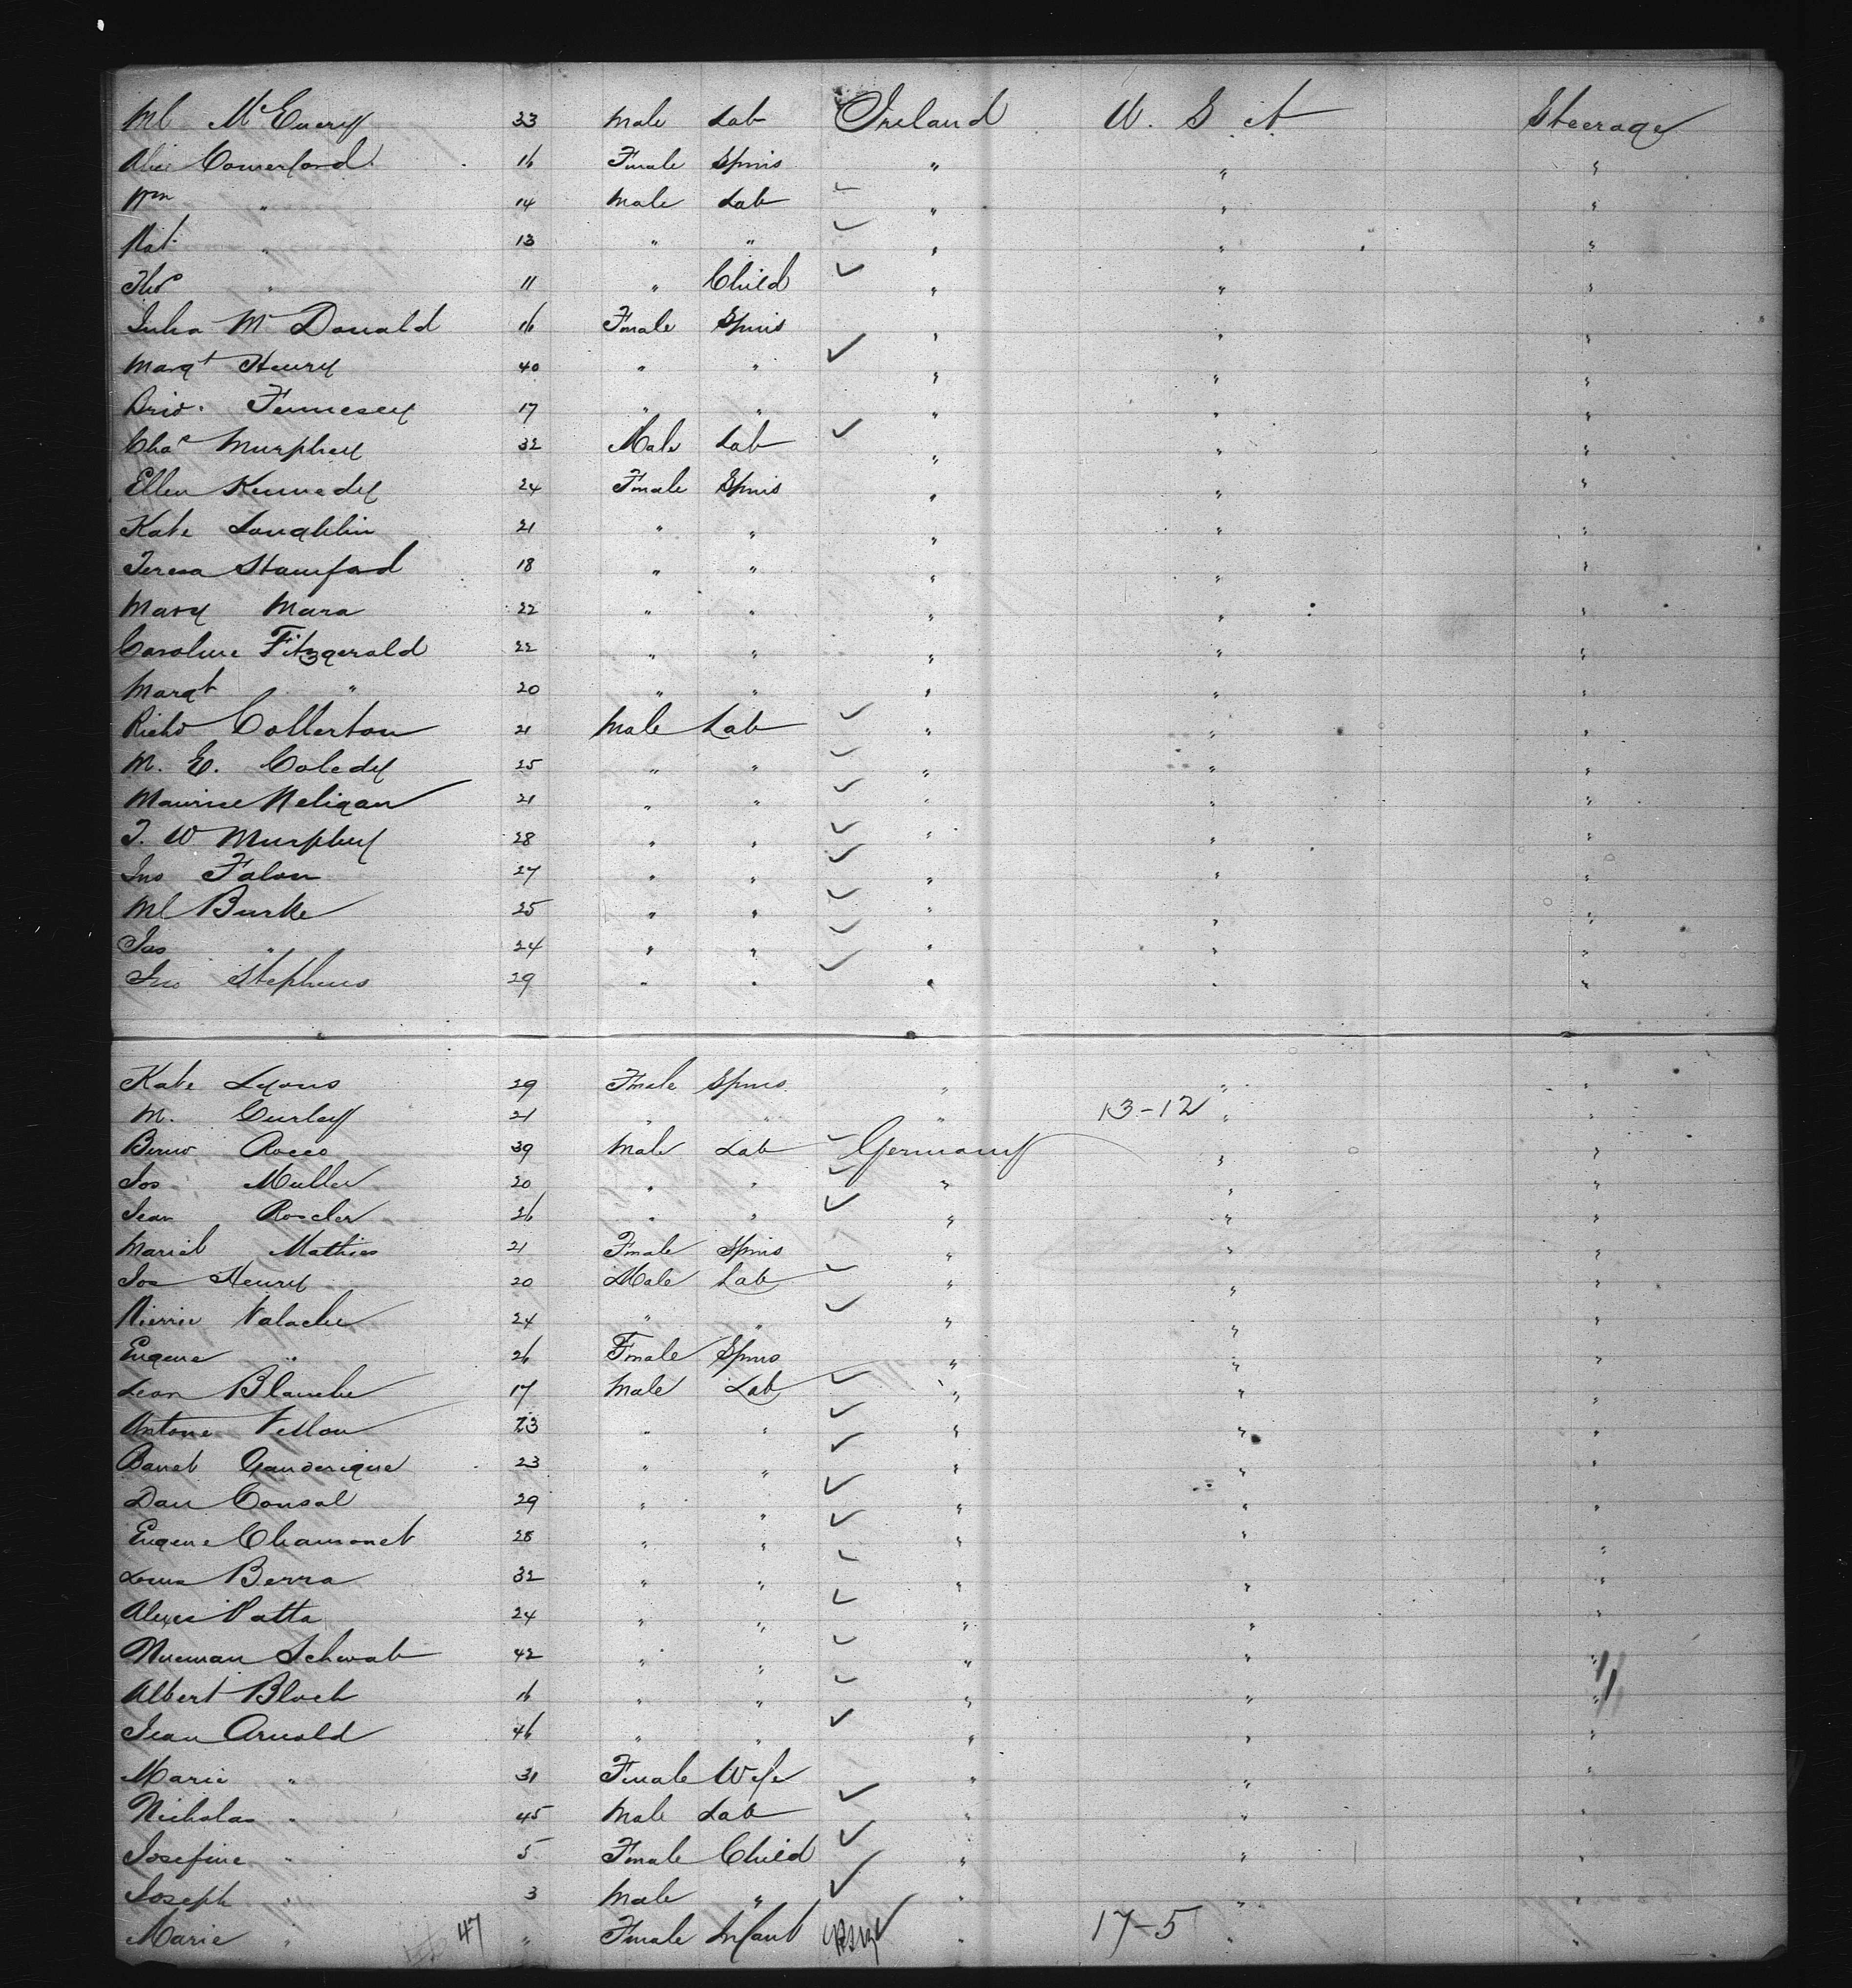 Ml McEnery 33 Male Lab Ireland U. S. A Steerage
Alice Comerford 16 Female Spins " " "
Wm " 14 Male Lab " " "
Pat " 13 " " " " "
Thos " 11 " Child " " "
Julia Mc Donald 16 Female Spins " " "
Margt Henry 40 " " " " "
Brid. Fennesey 17 " " " " "
Chas Murphey 32 Male Lab " " "
Ellen Kennedy 24 Female Spins " " "
Kate Loughlin 21 " " " " "
Teresa Stamford 18 " " " " "
Mary Mara 22 " " " " "
Caroline Fitzgerald 22 " " " " "
Margt " 20 " " " " "
Richd Collerton 21 Male Lab " " "
M. E. Coledy 25 " " " " "
Maurice Neligan 21 " " " " "
T. W Murphy 28 " " " " "
Jno Falon 27 " " " " "
Ml Burke 25 " " " " "
Jas " 24 " " " " "
Jno Stephens 29 " " " " "
Kate Lyons 29 Female Spins " " "
M. Curley 21 " " " 13-12 " "
Rocco 39 Male Lab Germany " "
Jos Muller 20 " " " " "
Jean Roseler 26 " " " " "
Mathies 21 Female Spins " " "
Jos Henry 20 Male Lab " " "
Pierrie Valache 24 " " " " "
Eugene " 26 Female Spins " " "
Leon Blanche 17 Male Lab " " "
Antone 23 " " " " "
23 " " " " "
Dan Consal 29 " " " " "
Eugene Chamonet 28 " " " " "
Louis Berra 32 " " " " "
Alexis Patta 24 " " " " "
Nueman Schwab 42 " " " " "
Albert Bloch 16 " " " " "
Jean Arnold 46 " " " " "
Marie " 31 Female Wife " " "
Nicholas " 45 Male Lab " " "
Josefine " 5 Female Child " " "
Joseph " 3 Male " " " "
Marie " 47 " Female Infant " 17-5 " "